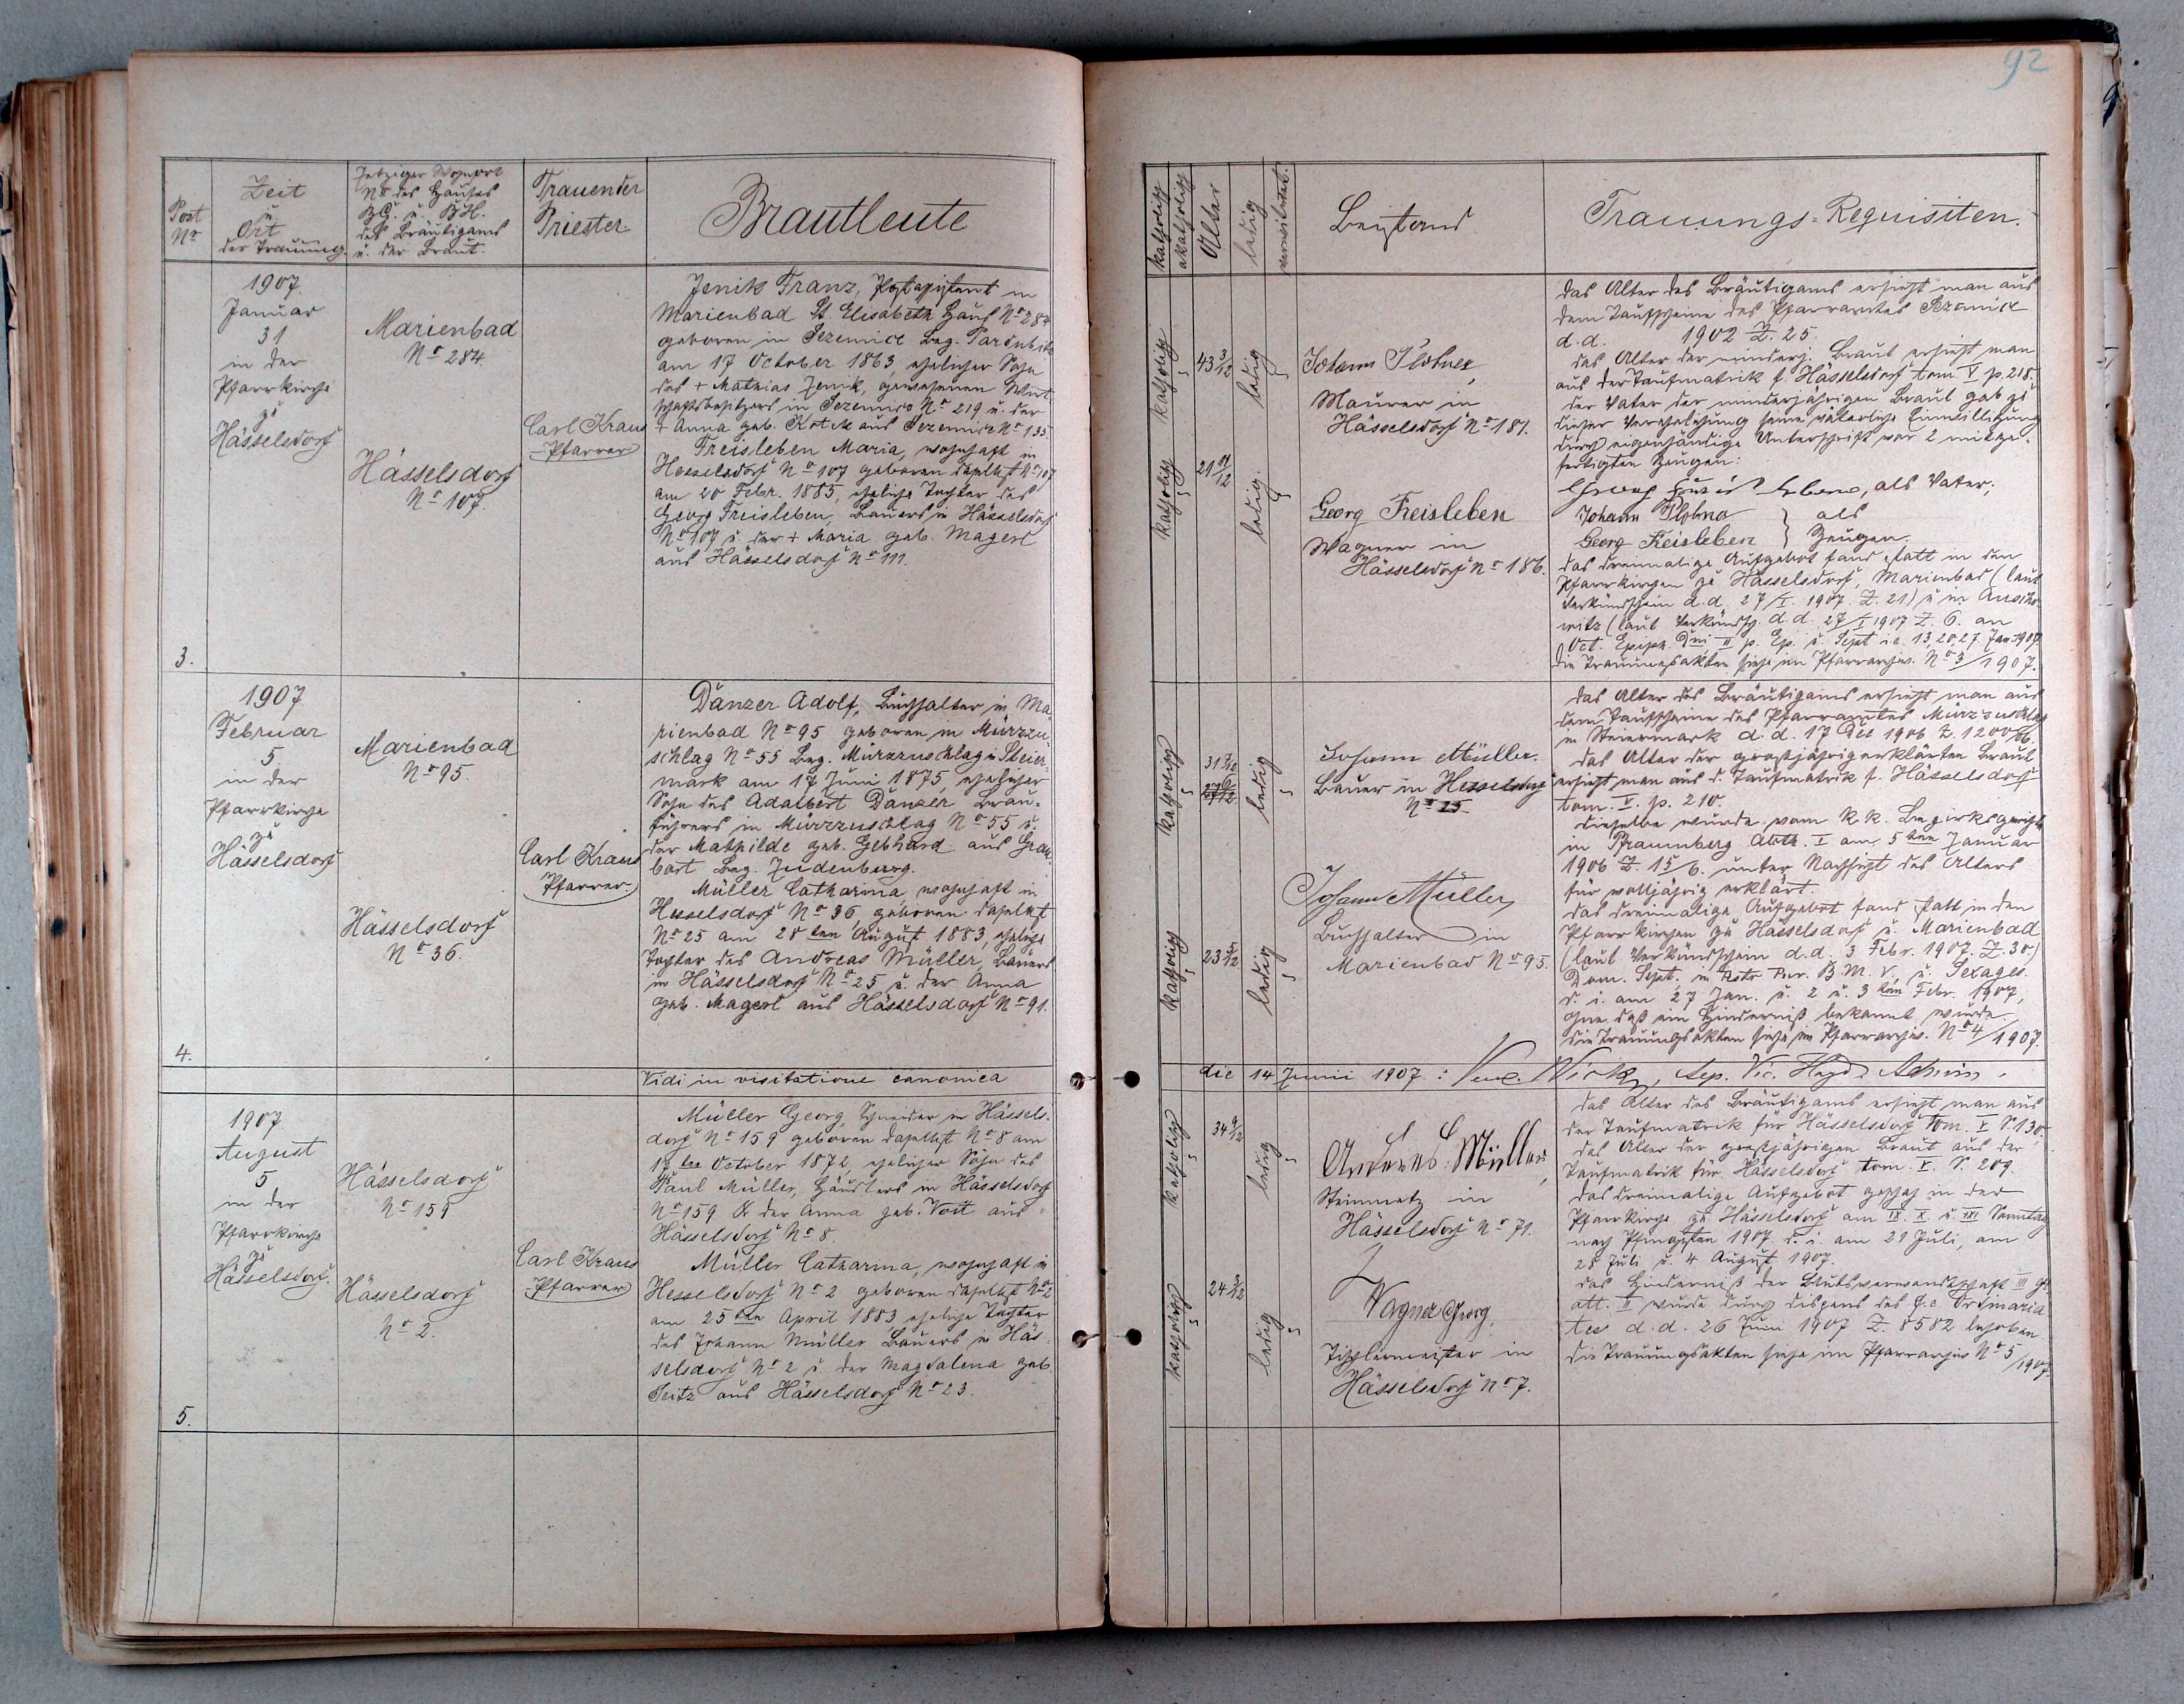 92
Post
No
Zeit
u.
Ort
der Trauung.
Jetziger Wohnort
No des Hauses
BG. u. BH.
des Bräutigams
u. der Braut.
Trauender
Priester
Brautleute
katholisch
akatholisch
Alter
ledig
verwittwet.
Beistand
Trauungs-Requisiten.
3.
1907.
Januar
31
in der
Pfarrkirche
zu
Hässelsdorf
Marienbad
No 284.
Hässelsdorf
No 107.
Carl Kraus
Pfarrer
Jenik Franz, Postassistent in
Marienbad St. Elisabeth Haus No 284
geboren in Sezemice Bez. Pardubitz
am 17 October 1863, ehelicher Sohn
des + Mathias Jenik, gewesenen Wirt-
schaftsbesitzers in Sezemice No 219 u. der
+ Anna geb. aus Sezemice No 135.
Freisleben Maria, wohnhaft in
Hesselsdorf No 107 geboren daselbst No 107
am 20 Febr. 1885, eheliche Tochter des
Georg Freisleben, Bauers in Hässelsdorf
No 107 u. der + Maria geb. Magerl
aus Hässelsdorf No 111.
katholisch
43 3/12
ledig
katholisch
21 11/12
ledig.
Johann
Maurer in
Hässelsdorf No 181.
Georg Freisleben
Wagner in
Hässelsdorf No 186.
Das Alter des Bräutigams ersieht man aus
dem Taufscheine des Pfarramtes Sezemice
d.d. 1902 Z. 25.
Das Alter der minderj. Braut ersieht man
aus der Taufmatrik f. Hässelsdorf tom. V p. 218.
Der Vater der minderjährigen Braut gab zu
dieser Verehelichung seine väterliche Einwilligung
durch eigenhändige Unterschrift vor 2 mitge-
fertigten Zeugen:
Georg, als Vater;
Johann } als
Georg Freisleben } Zeugen.
Das dreimalige Aufgebot fand statt in den
Pfarrkirchen zu Hässelsdorf, Marienbad (laut
Verkündschein d.d. 27/I. 1907. Z. 21) u. in
witz (laut Verkündsch. d.d. 27/I 1907 Z. 6. an
Oct. Epiph. Dni II p. Ep. u. Sept i.e. 13, 20, 27. Jan. 1907.
Die Trauungsakten siehe im Pfarrarchiv. No 3/1907.
4.
1907
Februar
5
in der
Pfarrkirche
zu
Hässelsdorf
Marienbad
No 95.
Hässelsdorf
No 36.
Carl Kraus
Pfarrer.
Danzer Adolf, Buchhalter in Ma-
rienbad No 95 geboren in Mürzzu
schlag No 55 Bez. Mürzzuschlag in Steier-
mark am 17 Juni 1875, ehelicher
Sohn des Adalbert Danzer, Brau-
führers in Mürzzuschlag No 55 u.
der Mathilde geb. Gebhard aus
Bez. Judenburg.
Müller Catharina, wohnhaft in
Hesselsdorf No 36, geboren daselbst
No 25 am 28ten August 1883, eheliche
Tochter des Andreas Müller, Bauers
in Hässelsdorf No 25 u. der Anna
geb. Magerl aus Hässelsdorf No 91.
katholisch
31 7/12
ledig
katholisch
23 5/12
ledig
Johann Müller.
Bauer in Hesselsdorf
No 25
Johann Müller,
Buchhalter in
Marienbad No 95.
Das Alter des Bräutigams ersieht man aus
dem Taufscheine des Pfarramtes Mürzzuschlag
in Steiermark d.d. 17 Dez 1906 Z. 1200/06.
Das Alter der großjährigerklärten Braut
ersieht man aus d. Taufmatrik f. Hässelsdorf
tom. V. p. 210.
Dieselbe wurde vom K.K. Bezirksgericht
in Pfraumberg Abth. I am 5ten Januar
1906 Z. 15/6. unter Nachsicht des Alters
für volljährig erklärt.
Das dreimalige Aufgebot fand statt in den
Pfarrkirchen zu Hässelsdorf u. Marienbad
(laut Verkündschein d.d. 3 Febr. 1907. Z. 30)
Dom. Sept., in Pur. B. M. V. u. Sexages.
d. i. am 27 Jan. u. 2 u. 3ten Febr. 1907,
ohne daß ein Hinderniß bekannt wurde.
Die Trauungsakten siehe im Pfarrarchiv. No 4/1907.
Vidi in visitatione canonica
die 14 Junii 1907:
5.
1907
August
5
in der
Pfarrkirche
zu
Hässelsdorf.
Hässelsdorf
No 159
Hässelsdorf
No 2.
Carl Kraus
Pfarrer
Müller Georg, Schneider in Hässels-
dorf No 159 geboren daselbst No 8 am
17ten October 1872, ehelicher Sohn des
Paul Müller, Häuslers in Hässelsdorf
No 159 & der Anna geb. Voit aus
Hässelsdorf No 8.
Müller Catharina, wohnhaft in
Hesselsdorf No 2 geboren daselbst No 2
am 25ten April 1883, eheliche Tochter
des Johann Müller Bauers in Häs-
selsdorf No 2 u. der Magdalena geb.
Seitz aus Hässelsdorf No 23.
katholisch
34 9/12
ledig
katholisch
24 3/12
ledig
Andreas Müller,
Steinmetz in
Hässelsdorf No 71.
Wagner Georg,
Tischlermeister in
Hässelsdorf No 7.
Das Alter des Bräutigams ersieht man aus
der Taufmatrik für Hässelsdorf Tom. V S. 130.
Das Alter der großjährigen Braut aus der
Taufmatrik für Hässelsdorf tom. V. S. 209.
Das dreimalige Aufgebot geschah in der
Pfarrkirche zu Hässelsdorf am IX. X. u. XI Sonntag
nach Pfingsten 1907 d. i. am 21 Juli, am
28 Juli u. 4 August 1907.
Das Hinderniß der Blutsverwandtschaft III Gr.
att. II wurde durch Dispens des f.e. Ordinaria-
tes d.d. 26 Juni 1907 Z. 8582 behoben.
Die Trauungsakten siehe im Pfarrarchiv No 5/1907.